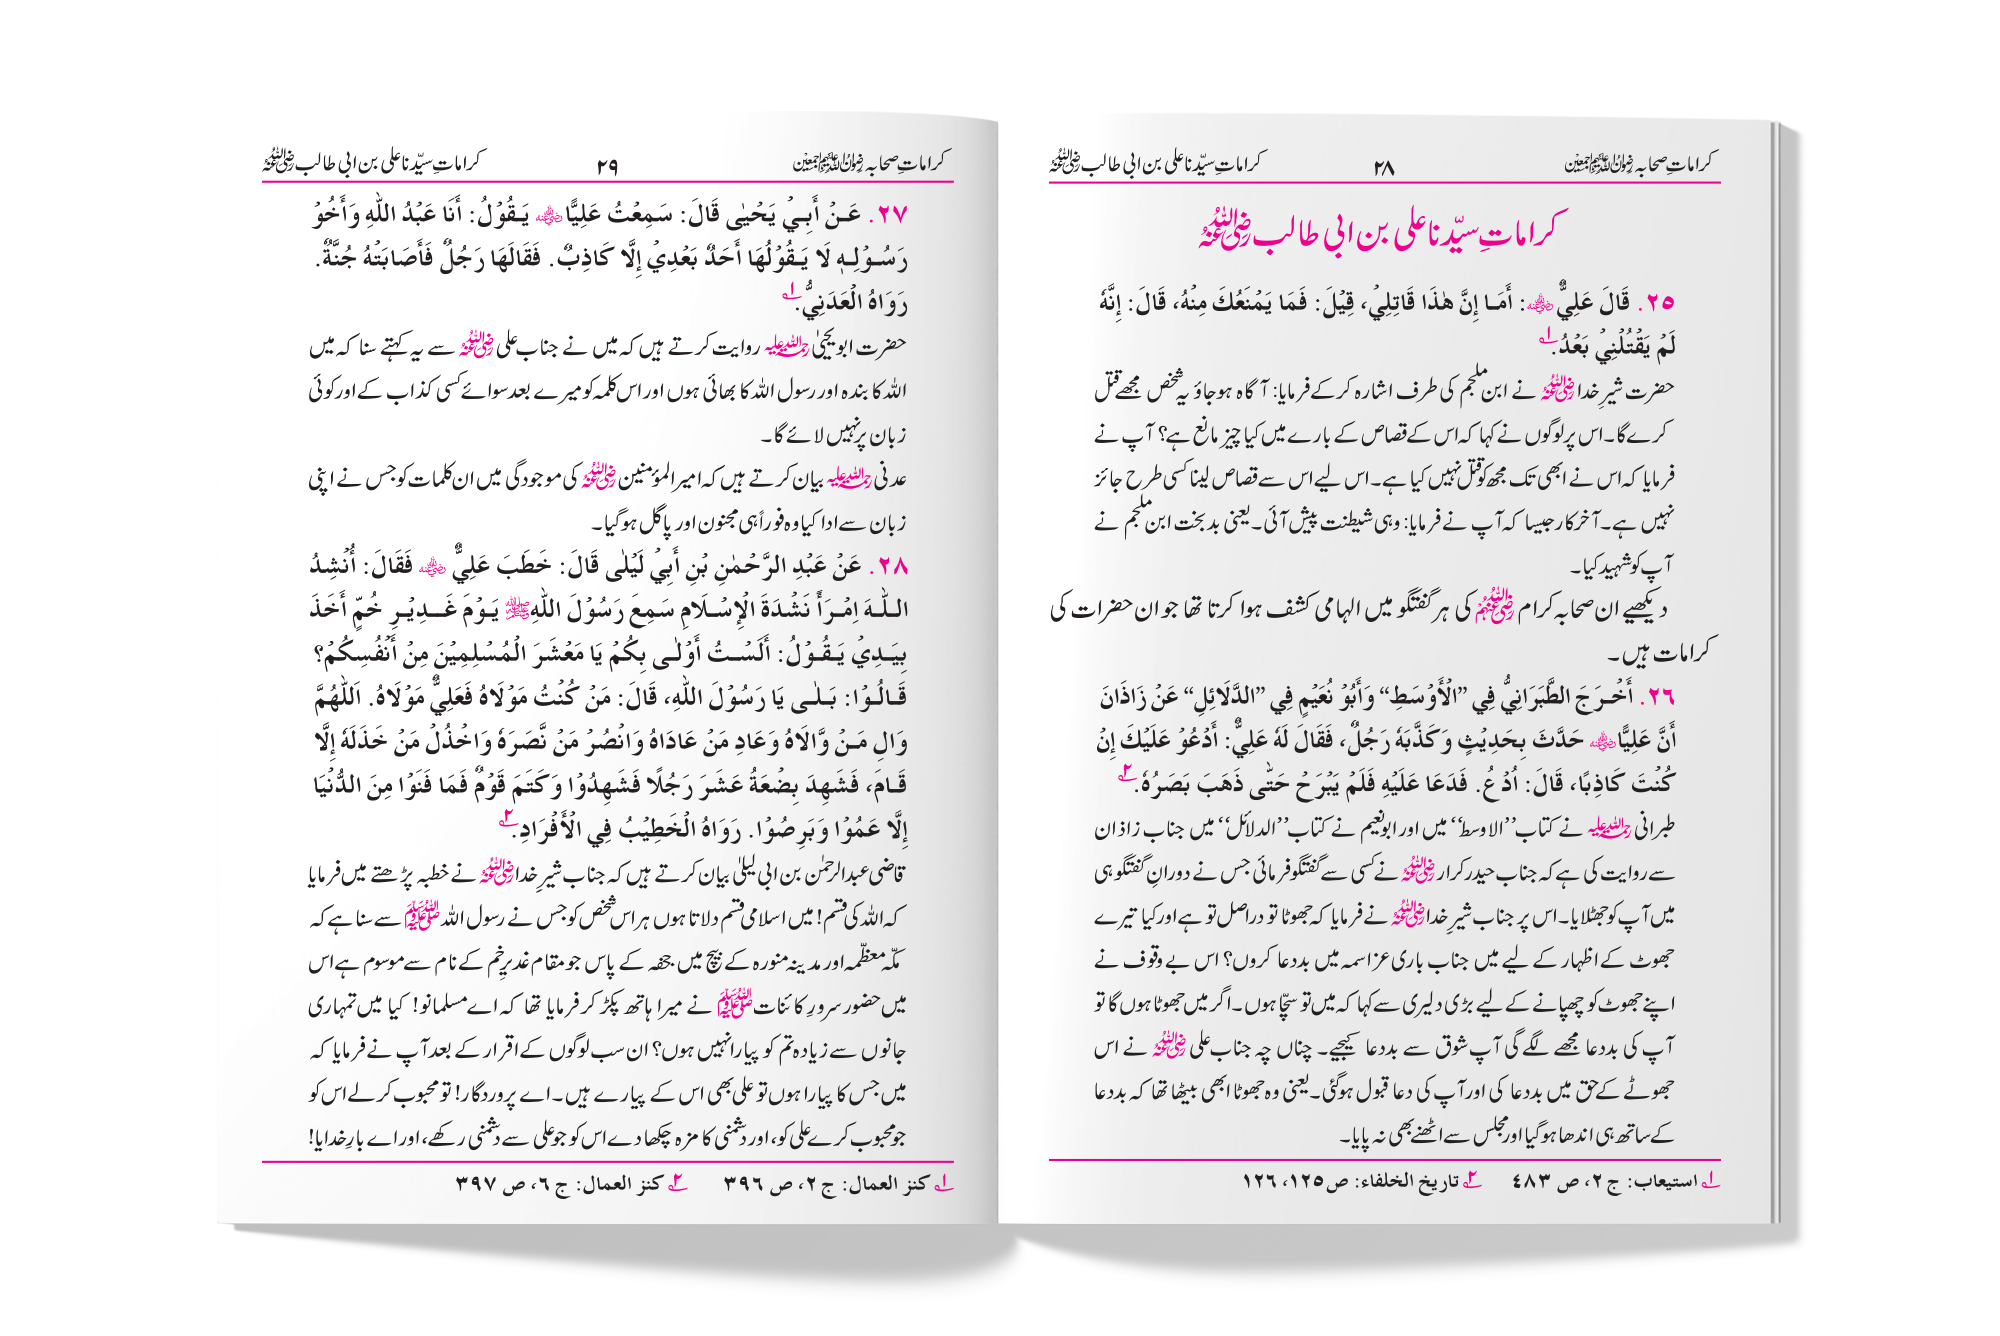 کرامات صحابہ رضوان اللہ علیہم اجمعین ۲۸ کراماتِ سیّدنا علی بن ابی طالب رضی اللہ عنہ
کراماتِ سیّدنا علی بن ابی طالب رضی اللہ عنہ
۲۵. قَالَ عَلِيٌّ رضی اللہ عنہ: أَمَا إِنَّ هٰذَا قَاتِلِيْ، قِيْلَ: فَمَا يَمْنَعُكَ مِنْهُ، قَالَ: إِنَّهٗ
لَمْ يَقْتُلْنِيْ بَعْدُ.۱؎
حضرت شیرِ خدا رضی اللہ عنہ نے ابن ملجم کی طرف اشارہ کرکے فرمایا: آگاہ ہوجاؤ یہ شخص مجھے قتل
کرے گا۔ اس پر لوگوں نے کہا کہ اس کے قصاص کے بارے میں کیا چیز مانع ہے؟ آپ نے
فرمایا کہ اس نے ابھی تک مجھ کو قتل نہیں کیا ہے۔ اس لیے اس سے قصاص لینا کسی طرح جائز
نہیں ہے۔ آخرکار جیسا کہ آپ نے فرمایا: وہی شیطنت پیش آئی۔ یعنی بدبخت ابن ملجم نے
آپ کو شہید کیا۔
دیکھیے ان صحابہ کرام رضی اللہ عنہم کی ہر گفتگو میں الہامی کشف ہوا کرتا تھا جو ان حضرات کی
کرامات ہیں۔
۲۶. أَخْرَجَ الطَّبَرَانِيُّ فِي ”الْأَوْسَطِ“ وَأَبُوْ نُعَيْمٍ فِي ”الدَّلَائِلِ“ عَنْ زَاذَانَ
أَنَّ عَلِيًّا رضی اللہ عنہ حَدَّثَ بِحَدِيْثٍ وَكَذَّبَهٗ رَجُلٌ، فَقَالَ لَهٗ عَلِيٌّ: أَدْعُوْ عَلَيْكَ إِنْ
كُنْتَ كَاذِبًا، قَالَ: اُدْعُ. فَدَعَا عَلَيْهِ فَلَمْ يَبْرَحْ حَتّٰى ذَهَبَ بَصَرُهٗ.۲؎
طبرانی رحمہ اللہ علیہ نے کتاب ’’الاوسط‘‘ میں اور ابونعیم نے کتاب ’’الدلائل‘‘ میں جناب زاذان
سے روایت کی ہے کہ جناب حیدر کرار رضی اللہ عنہ نے کسی سے گفتگو فرمائی جس نے دورانِ گفتگو ہی
میں آپ کو جھٹلایا۔ اس پر جناب شیرِ خدا رضی اللہ عنہ نے فرمایا کہ جھوٹا تو دراصل تو ہے اور کیا تیرے
جھوٹ کے اظہار کے لیے میں جناب باری عز اسمہ میں بددعا کروں؟ اس بے وقوف نے
اپنے جھوٹ کو چھپانے کے لیے بڑی دلیری سے کہا کہ میں تو سچّا ہوں۔ اگر میں جھوٹا ہوں گا تو
آپ کی بددعا مجھے لگے گی آپ شوق سے بددعا کیجیے۔ چناں چہ جناب علی رضی اللہ عنہ نے اس
جھوٹے کے حق میں بددعا کی اور آپ کی دعا قبول ہوگئی۔ یعنی وہ جھوٹا ابھی بیٹھا تھا کہ بددعا
کے ساتھ ہی اندھا ہوگیا اور مجلس سے اٹھنے بھی نہ پایا۔
۱؎ استیعاب: ج ۲، ص ۴۸۳ ۲؎ تاریخ الخلفاء: ص ۱۲۵، ۱۲۶
کرامات صحابہ رضوان اللہ علیہم اجمعین ۲۹ کراماتِ سیّدنا علی بن ابی طالب رضی اللہ عنہ
۲۷. عَنْ أَبِيْ يَحْيٰى قَالَ: سَمِعْتُ عَلِيًّا رضی اللہ عنہ يَقُوْلُ: أَنَا عَبْدُ اللهِ وَأَخُوْ
رَسُوْلِهٖ لَا يَقُوْلُهَا أَحَدٌ بَعْدِيْ إِلَّا كَاذِبٌ. فَقَالَهَا رَجُلٌ فَأَصَابَتْهُ جُنَّةٌ.
رَوَاهُ الْعَدَنِيُّ.۱؎
حضرت ابویحییٰ رحمہ اللہ علیہ روایت کرتے ہیں کہ میں نے جناب علی رضی اللہ عنہ سے یہ کہتے سنا کہ میں
اللہ کا بندہ اور رسول اللہ کا بھائی ہوں اور اس کلمہ کو میرے بعد سوائے کسی کذاب کے اور کوئی
زبان پر نہیں لائے گا۔
عدنی رحمہ اللہ علیہ بیان کرتے ہیں کہ امیر المؤمنین رضی اللہ عنہ کی موجودگی میں ان کلمات کو جس نے اپنی
زبان سے ادا کیا وہ فوراً ہی مجنون اور پاگل ہوگیا۔
۲۸. عَنْ عَبْدِ الرَّحْمٰنِ بْنِ أَبِيْ لَيْلٰى قَالَ: خَطَبَ عَلِيٌّ رضی اللہ عنہ فَقَالَ: أُنْشِدُ
اللّٰهَ اِمْرَأً نَشْدَةَ الْإِسْلَامِ سَمِعَ رَسُوْلَ اللهِ ﷺ يَوْمَ غَدِيْرِ خُمٍّ أَخَذَ
بِيَدِيْ يَقُوْلُ: أَلَسْتُ أَوْلٰى بِكُمْ يَا مَعْشَرَ الْمُسْلِمِيْنَ مِنْ أَنْفُسِكُمْ؟
قَالُوْا: بَلٰى يَا رَسُوْلَ اللهِ، قَالَ: مَنْ كُنْتُ مَوْلَاهُ فَعَلِيٌّ مَوْلَاهُ. اَللّٰهُمَّ
وَالِ مَنْ وَّالَاهُ وَعَادِ مَنْ عَادَاهُ وَانْصُرْ مَنْ نَّصَرَهٗ وَاخْذُلْ مَنْ خَذَلَهٗ إِلَّا
قَامَ، فَشَهِدَ بِضْعَةُ عَشَرَ رَجُلًا فَشَهِدُوْا وَكَتَمَ قَوْمٌ فَمَا فَنَوْا مِنَ الدُّنْيَا
إِلَّا عَمُوْا وَبَرِصُوْا. رَوَاهُ الْخَطِيْبُ فِي الْأَفْرَادِ.۲؎
قاضی عبدالرحمٰن بن ابی لیلیٰ بیان کرتے ہیں کہ جناب شیرِ خدا رضی اللہ عنہ نے خطبہ پڑھتے میں فرمایا
کہ اللہ کی قسم! میں اسلامی قسم دلاتا ہوں ہر اس شخص کو جس نے رسول اللہ ﷺ سے سنا ہے کہ
مکّہ معظّمہ اور مدینہ منورہ کے بیچ میں جحفہ کے پاس جو مقام غدیرِ خم کے نام سے موسوم ہے اس
میں حضور سرورِ کائنات ﷺ نے میرا ہاتھ پکڑ کر فرمایا تھا کہ اے مسلمانو! کیا میں تمہاری
جانوں سے زیادہ تم کو پیارا نہیں ہوں؟ ان سب لوگوں کے اقرار کے بعد آپ نے فرمایا کہ
میں جس کا پیارا ہوں تو علی بھی اس کے پیارے ہیں۔ اے پروردگار! تو محبوب کرلے اس کو
جو محبوب کرے علی کو، اور دشمنی کا مزہ چکھا دے اس کو جو علی سے دشمنی رکھے، اور اے بارِ خدایا!
۱؎ کنز العمال: ج ۲، ص ۳۹۶ ۲؎ کنز العمال: ج ۶، ص ۳۹۷